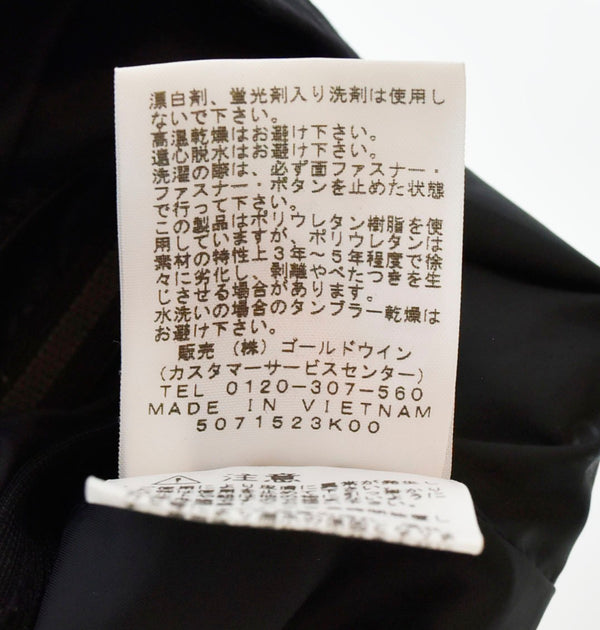 漂白剤、蛍光剤入り洗剤は使用し
ないで下さい。
高温乾燥はお避け下さい。
遠心脱水はお避け下さい。
洗濯の際は、必ず面ファスナー・
ファスナー・ボタンを止めた状態
で行って下さい。
この製品はポリウレタン樹脂を使
用していますが、ポリウレタンは
素材の特性上３年～５年程度で徐
々に劣化し、剥離やべたつきを生
じさせる場合があります。
水洗いの場合のタンブラー乾燥は
お避け下さい。
販売 （株）ゴールドウイン
(カスタマーサービスセンター)
TEL 0120-307-560
MADE IN VIETNAM
5071523K00
注意